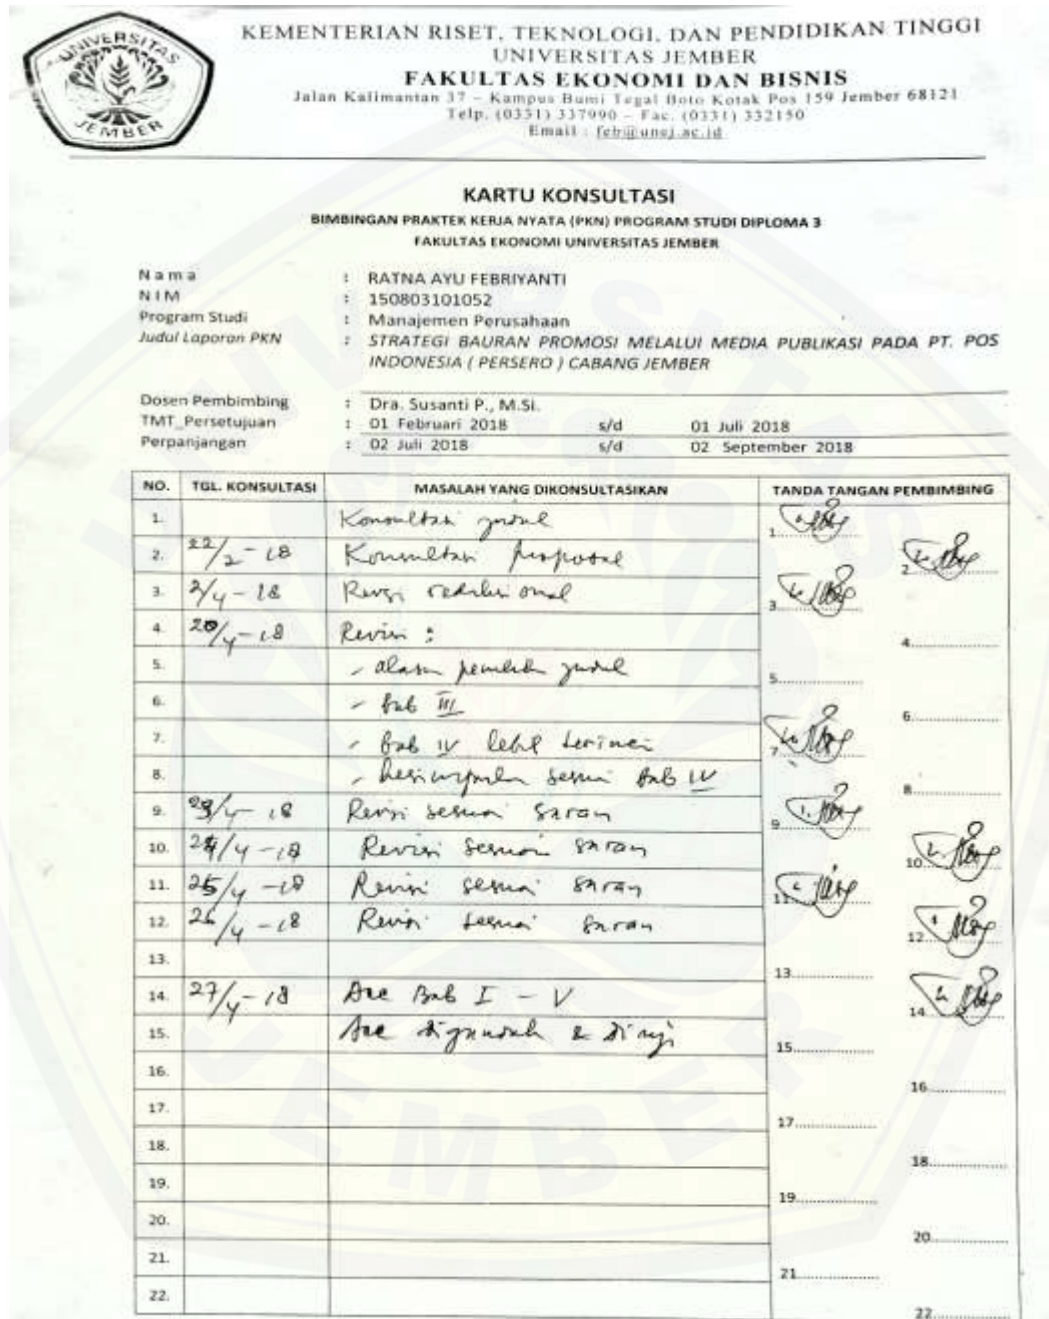 UNIVERSITAS
JEMBER
KEMENTERIAN RISET, TEKNOLOGI, DAN PENDIDIKAN TINGGI
UNIVERSITAS JEMBER
FAKULTAS EKONOMI DAN BISNIS
Jalan Kalimantan 37 – Kampus Bumi Tegal Boto Kotak Pos 159 Jember 68121
Telp. (0331) 337990 – Fac. (0331) 332150
Email : feb@unej.ac.id
KARTU KONSULTASI
BIMBINGAN PRAKTEK KERJA NYATA (PKN) PROGRAM STUDI DIPLOMA 3
FAKULTAS EKONOMI UNIVERSITAS JEMBER
N a m a : RATNA AYU FEBRIYANTI
N I M : 150803101052
Program Studi : Manajemen Perusahaan
Judul Laporan PKN : STRATEGI BAURAN PROMOSI MELALUI MEDIA PUBLIKASI PADA PT. POS
INDONESIA ( PERSERO ) CABANG JEMBER
Dosen Pembimbing : Dra. Susanti P., M.Si.
TMT_Persetujuan : 01 Februari 2018 s/d 01 Juli 2018
Perpanjangan : 02 Juli 2018 s/d 02 September 2018
NO. TGL. KONSULTASI MASALAH YANG DIKONSULTASIKAN TANDA TANGAN PEMBIMBING
1. Konsultasi judul 1.
2. 22/2-18 Konsultasi proposal 2.
3. 2/4-18 Revisi redaksional 3.
4. 20/4-18 Revisi : 4.
5. - alasan pemilihan judul 5.
6. - bab III 6.
7. - bab IV lebih terinci 7.
8. - kesimpulan sesuai bab IV 8.
9. 23/4-18 Revisi sesuai saran 9.
10. 24/4-18 Revisi sesuai saran 10.
11. 25/4-18 Revisi sesuai saran 11.
12. 26/4-18 Revisi sesuai saran 12.
13. 13.
14. 27/4-18 Acc Bab I - V 14.
15. Acc digandakan & diuji 15.
16. 16.
17. 17.
18. 18.
19. 19.
20. 20.
21. 21.
22. 22.